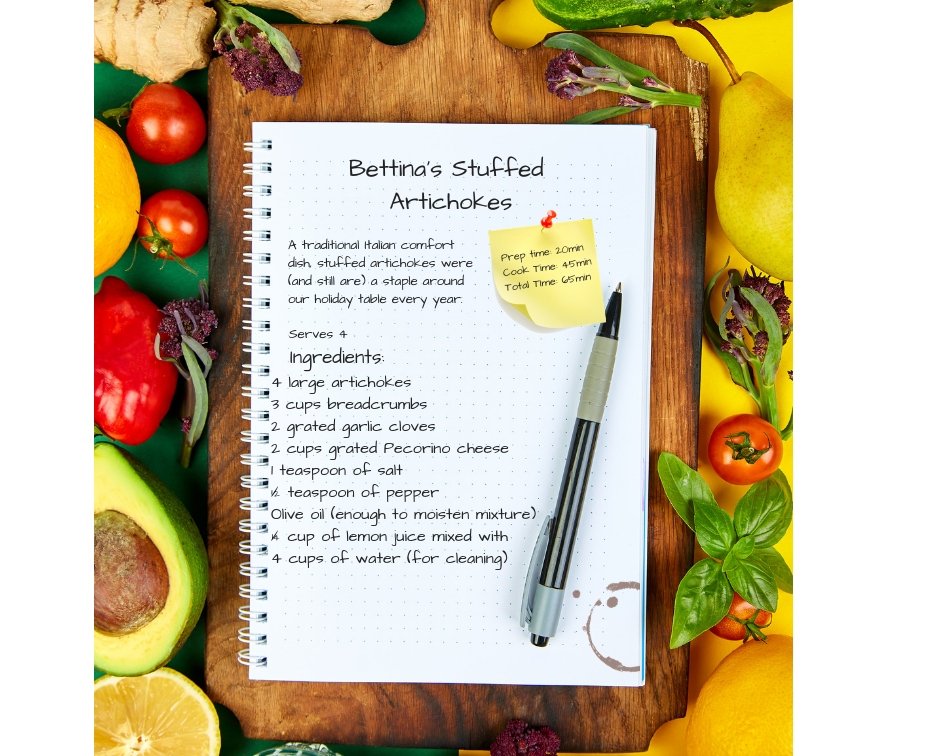 Bettina's Stuffed
Artichokes
A traditional Italian comfort
dish, stuffed artichokes were
(and still are) a staple around
our holiday table every year.
Prep time: 20min
Cook Time: 45min
Total Time: 65min
Serves 4
Ingredients:
4 large artichokes
3 cups breadcrumbs
2 grated garlic cloves
2 cups grated Pecorino cheese
1 teaspoon of salt
½ teaspoon of pepper
Olive oil (enough to moisten mixture)
¼ cup of lemon juice mixed with
4 cups of water (for cleaning)